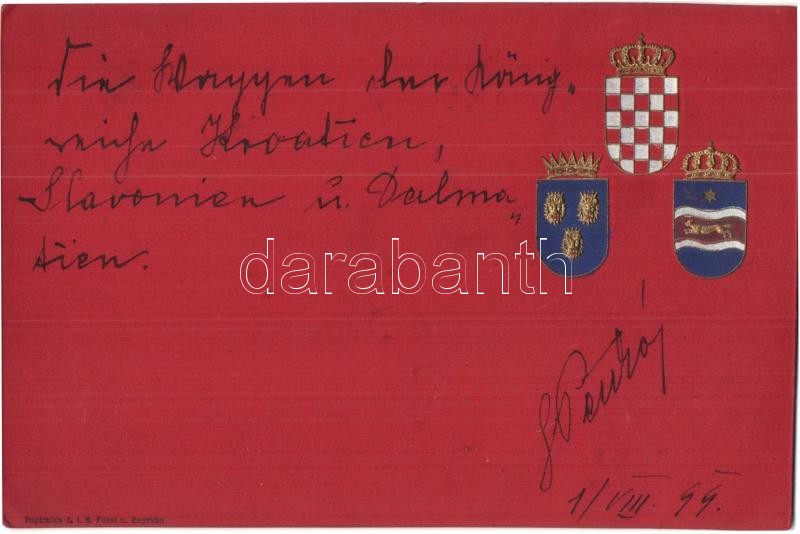 Die Wappen der König„
reiche Kroatien,
Slavonien u. Dalma„
tien.
darabanth
1/VIII. 99.